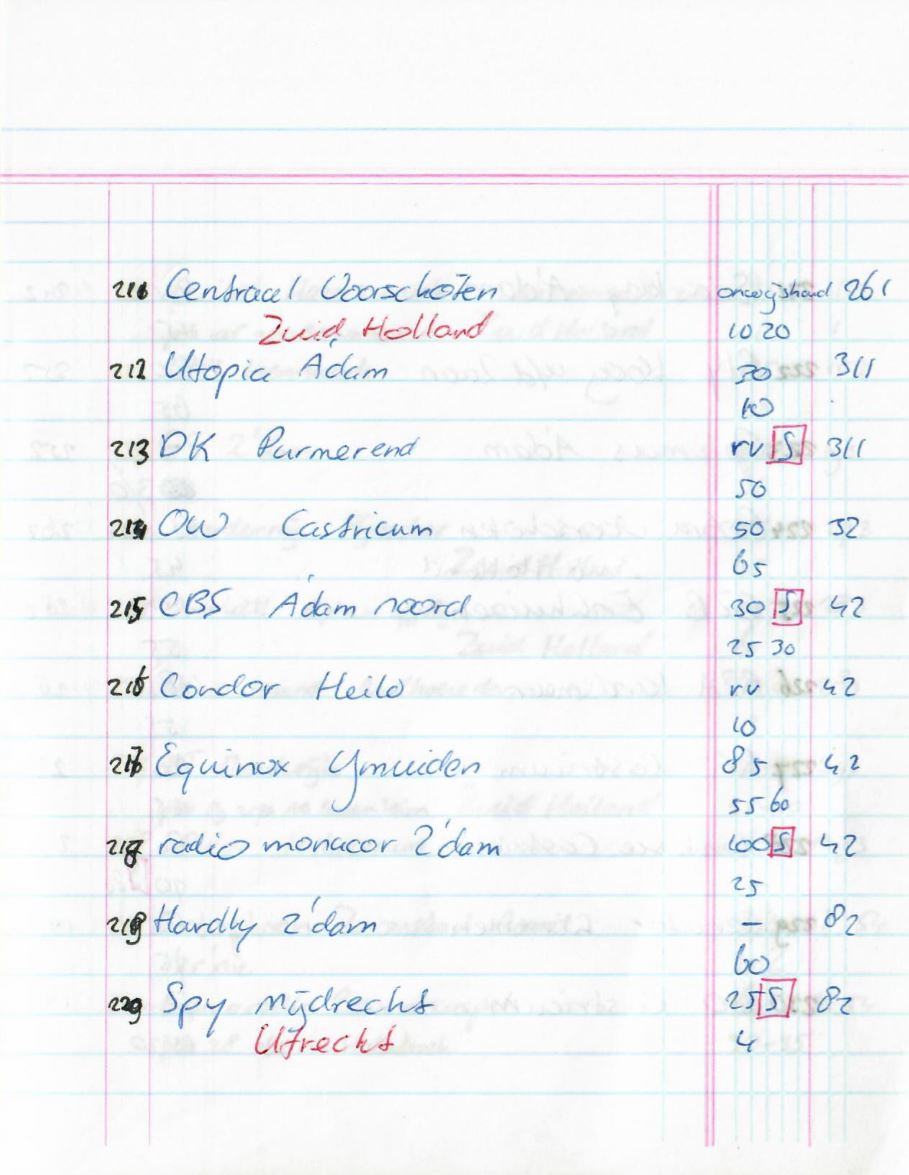 Centraal Voorschoten onwijshard 261
Zuid Holland 10 20
212 Utopia A'dam 30 311
10
213 DK Purmerend rv S 311
50
214 OW Castricum 50 32
65
215 CBS A'dam noord 30 S 42
25 30
216 Condor Heilo rv 42
10
217 Equinox Ymuiden 85 42
55 60
218 radio monacor Z'dam 100 S 42
25
219 Hardly Z'dam – 82
60
220 Spy mijdrecht 25 S 82
Utrecht 4